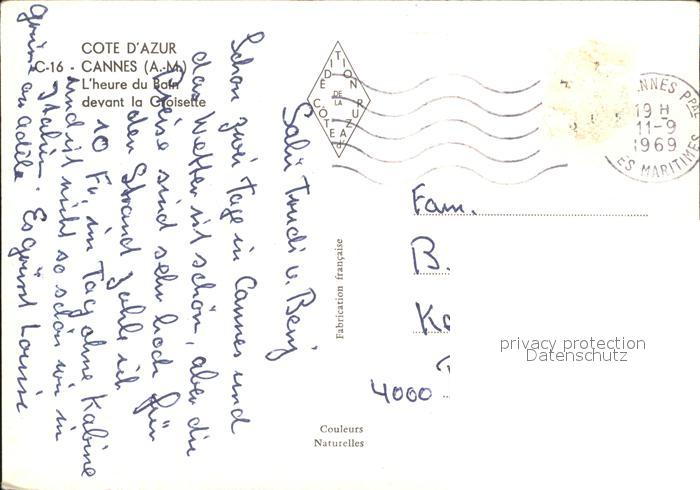 COTE D'AZUR
C-16 - CANNES (A.-M.)
L'heure du Bain
devant la Croisette
EDITION
DE
LA
CÔTE d'AZUR
CANNES PPAL
19 H
11-9
1969
ALPES MARITIMES
Salü Trudi u. Benj
Schon zwei Tage in Cannes und
das Wetter ist schön, aber die
Preise sind sehr hoch für
den Strand zahle ich
10 Fr. im Tag ohne Kabine
und ist nicht so schön wie in
Italien. Es grüsst Louise
grüsse an Adele
Fabrication française
Fam.
B.
4000
privacy protection
Datenschutz
Couleurs
Naturelles